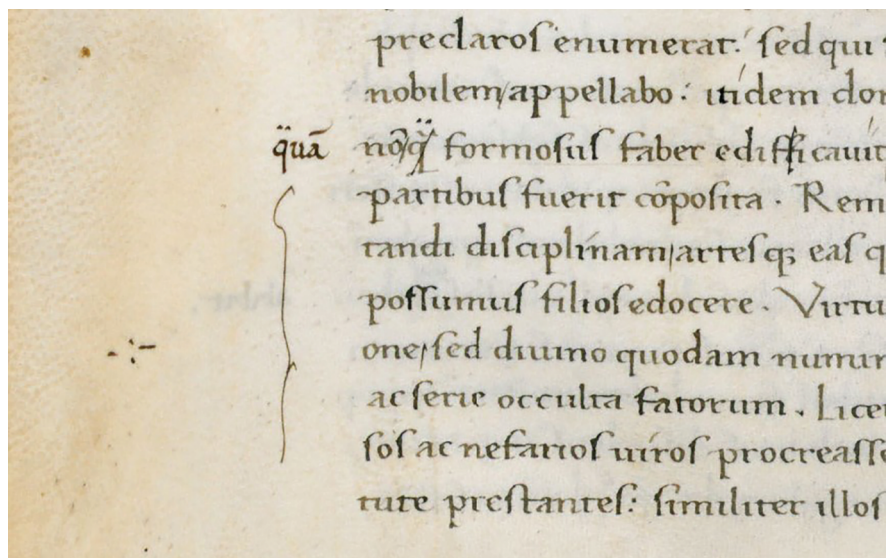 preclaros enumerat: sed qui
nobilem/appellabo: itidem do
q̈uā
nō/q̈ formosus faber edifficauit
partibus fuerit cōposita. Rem
tandi disciplinam/artesq; eas q
possumus filios edocere. Virtu
one/sed diuino quodam numin
ac serie occulta fatorum. Lice
sos ac nefarios uiros procreasse
tute prestantes: similiter illos